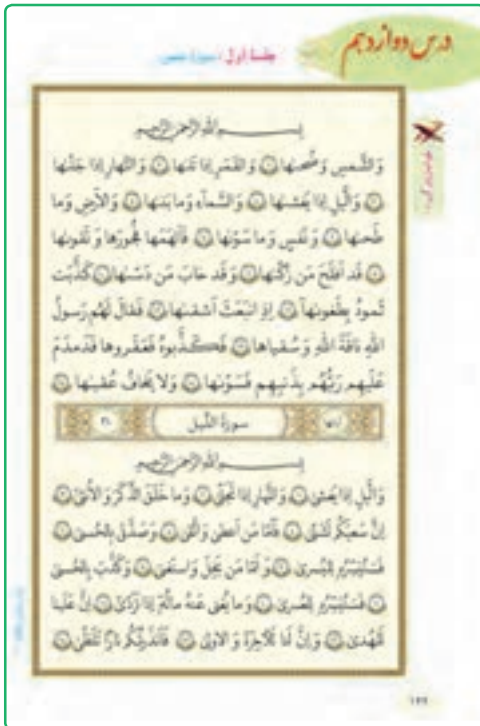 درس دوازدهم
جلسهٔ اول: سورهٔ شمس
بِسْمِ اللهِ الرَّحْمٰنِ الرَّحیمِ
وَالشَّمسِ وَضُحىٰها ۝ وَالقَمَرِ إِذا تَلىٰها ۝ وَالنَّهارِ إِذا جَلّىٰها
۝ وَالَّيلِ إِذا يَغشىٰها ۝ وَالسَّماءِ وَما بَنىٰها ۝ وَالأَرضِ وَما
طَحىٰها ۝ وَنَفسٍ وَما سَوّىٰها ۝ فَأَلهَمَها فُجورَها وَتَقوىٰها
۝ قَد أَفلَحَ مَن زَكّىٰها ۝ وَقَد خابَ مَن دَسّىٰها ۝ كَذَّبَت
ثَمودُ بِطَغوىٰها ۝ إِذِ انبَعَثَ أَشقىٰها ۝ فَقالَ لَهُم رَسولُ
اللهِ ناقَةَ اللهِ وَسُقياها ۝ فَكَذَّبوهُ فَعَقَروها فَدَمدَمَ
عَلَيهِم رَبُّهُم بِذَنبِهِم فَسَوّىٰها ۝ وَلا يَخافُ عُقبىٰها ۝
سورة اللّیل
بِسْمِ اللهِ الرَّحْمٰنِ الرَّحیمِ
وَالَّيلِ إِذا يَغشىٰ ۝ وَالنَّهارِ إِذا تَجَلّىٰ ۝ وَما خَلَقَ الذَّكَرَ وَالأُنثىٰ ۝
إِنَّ سَعيَكُم لَشَتّىٰ ۝ فَأَمّا مَن أَعطىٰ وَاتَّقىٰ ۝ وَصَدَّقَ بِالحُسنىٰ ۝
فَسَنُيَسِّرُهُ لِليُسرىٰ ۝ وَأَمّا مَن بَخِلَ وَاستَغنىٰ ۝ وَكَذَّبَ بِالحُسنىٰ
۝ فَسَنُيَسِّرُهُ لِلعُسرىٰ ۝ وَما يُغني عَنهُ مالُهُ إِذا تَرَدّىٰ ۝ إِنَّ عَلَينا
لَلهُدىٰ ۝ وَإِنَّ لَنا لَلآخِرَةَ وَالأولىٰ ۝ فَأَنذَرتُكُم نارًا تَلَظّىٰ ۝